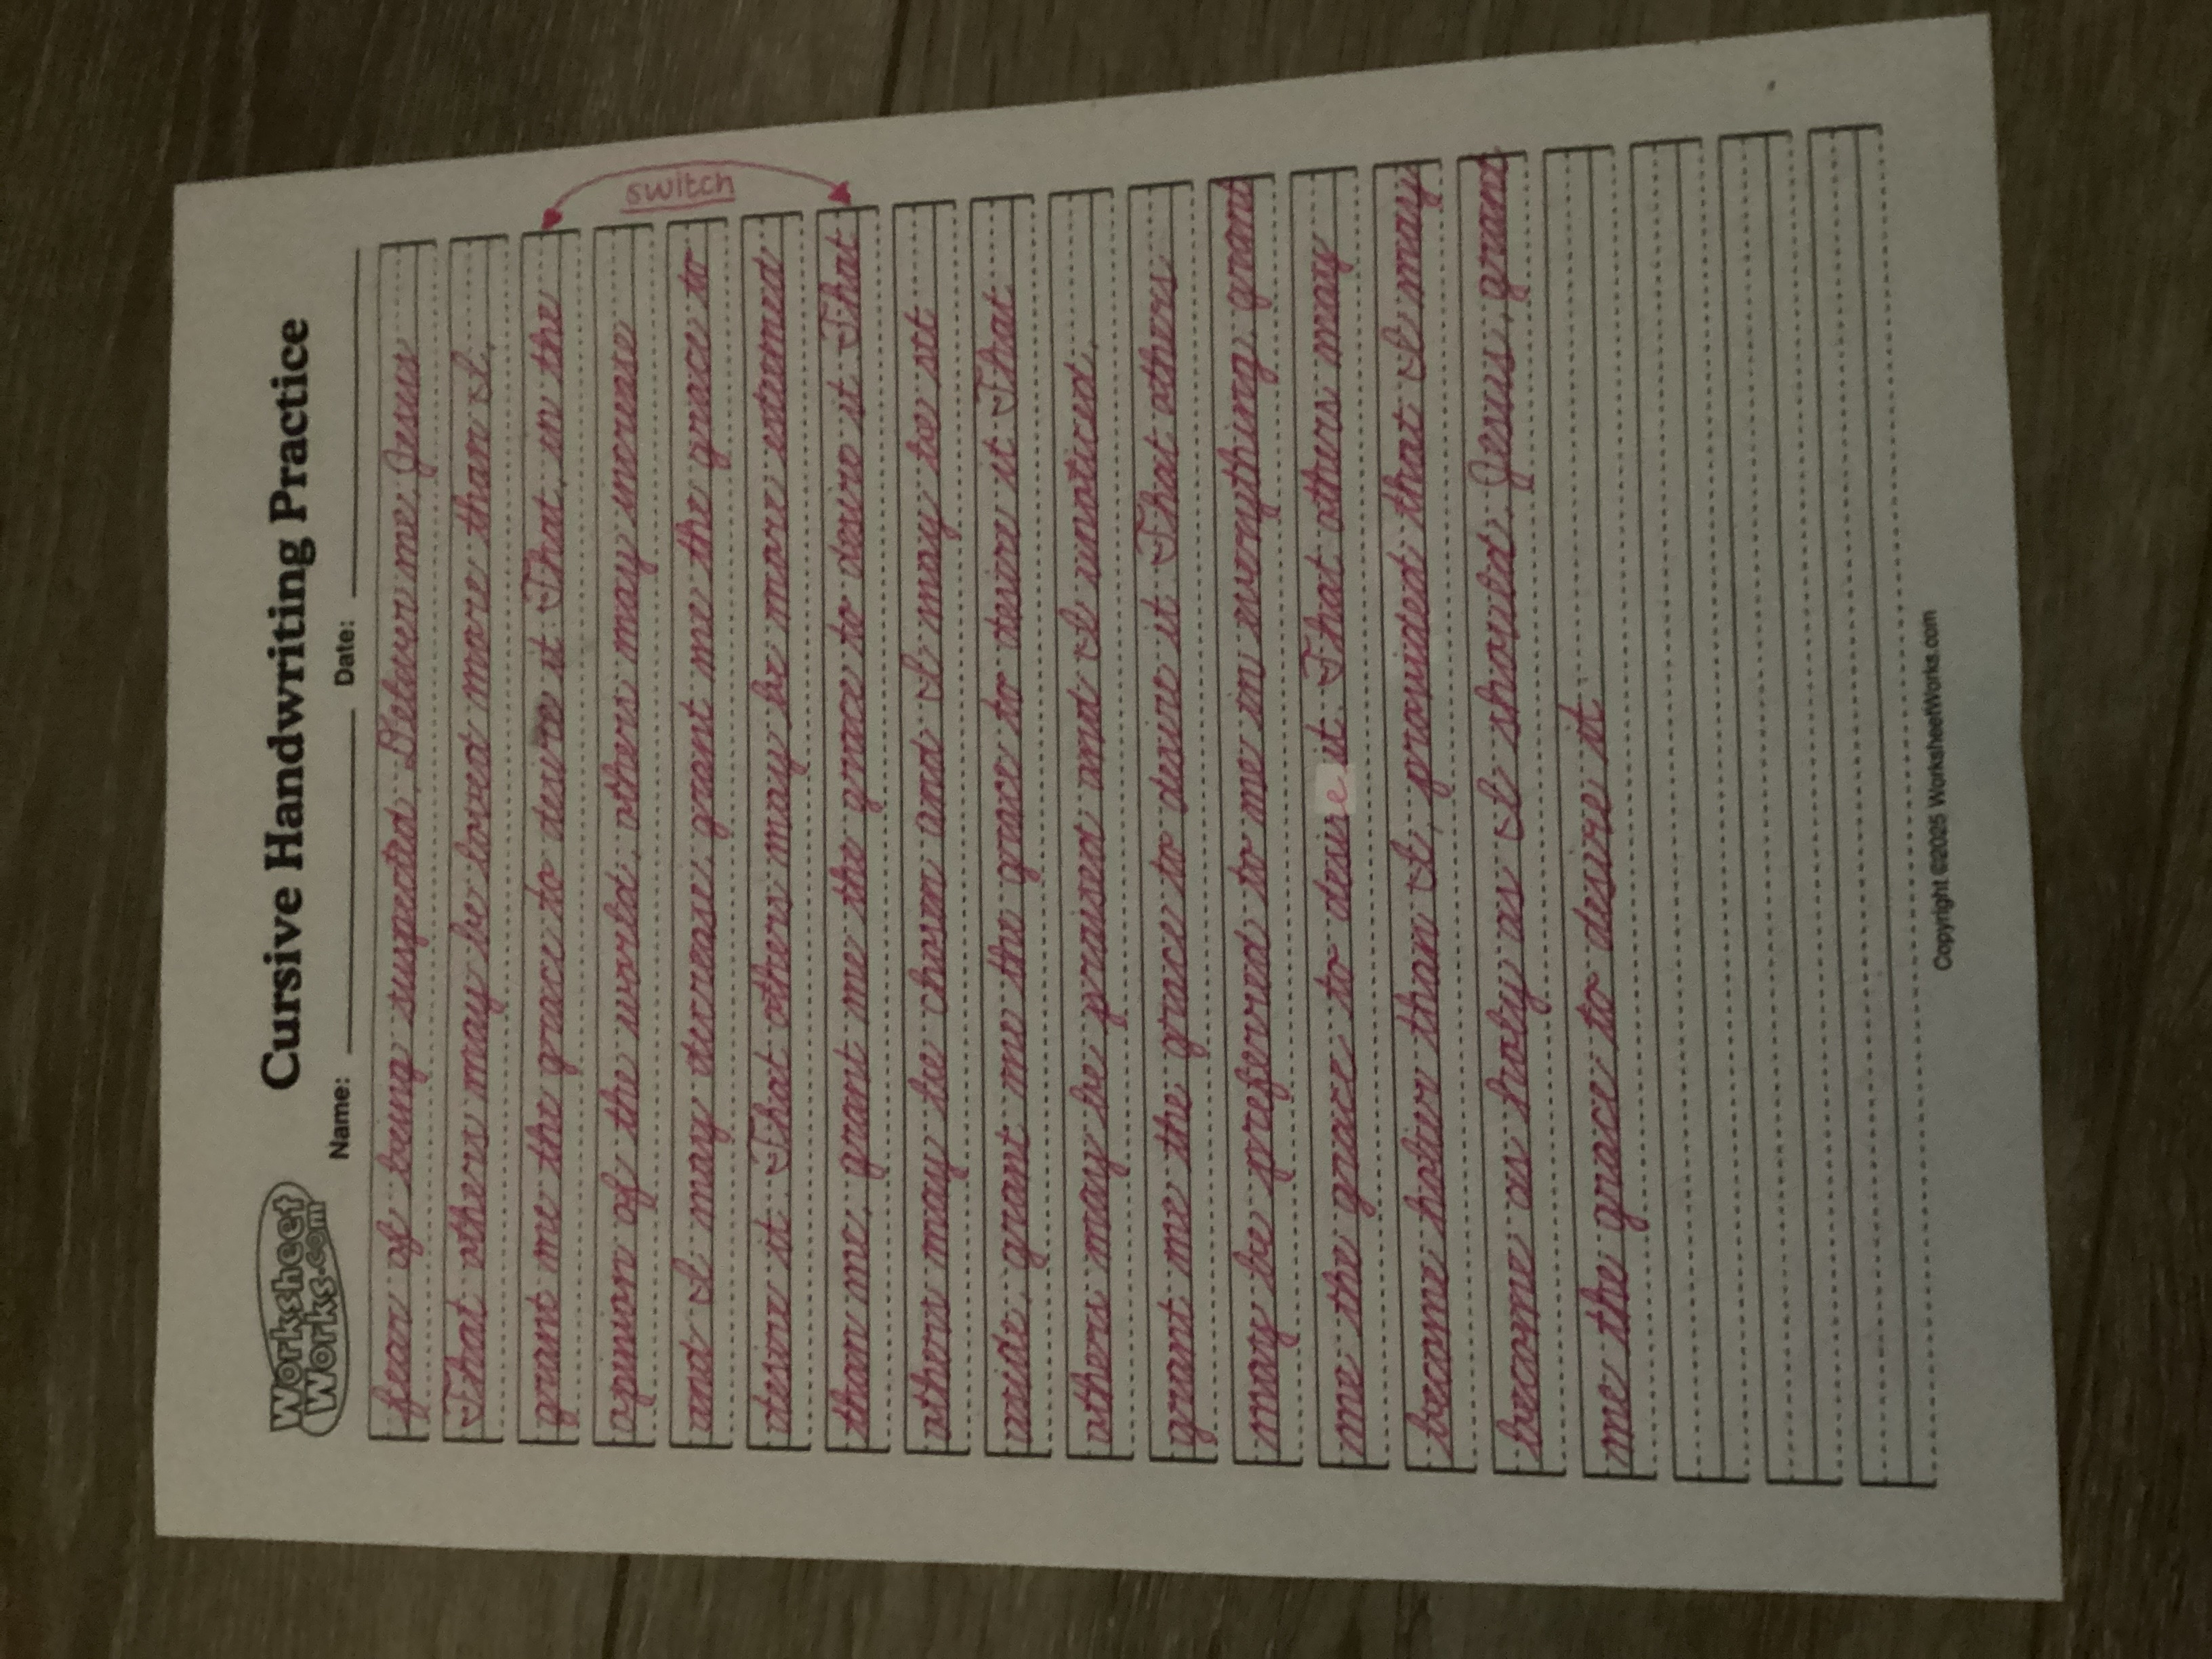 Worksheet Works.com
Cursive Handwriting Practice
Name: Date:
fear of being suspected, Deliver me, Jesus
That others may be loved more than I,
grant me the grace to desire it That, in the
switch
opinion of the world, others may increase
and I may decrease, grant me the grace to
desire it. That others may be more esteemed
than me, grant me the grace to desire it That
others may be chosen and I may be set
aside, grant me the grace to desire it That
others may be praised and I unnoticed,
grant me the grace to desire it. That others
may be preferred to me in everything, grant
me the grace to desire it. That others may
become holier than I, provided that I may
become as holy as I should. Jesus, grant
me the grace to desire it
Copyright ©2025 WorksheetWorks.com